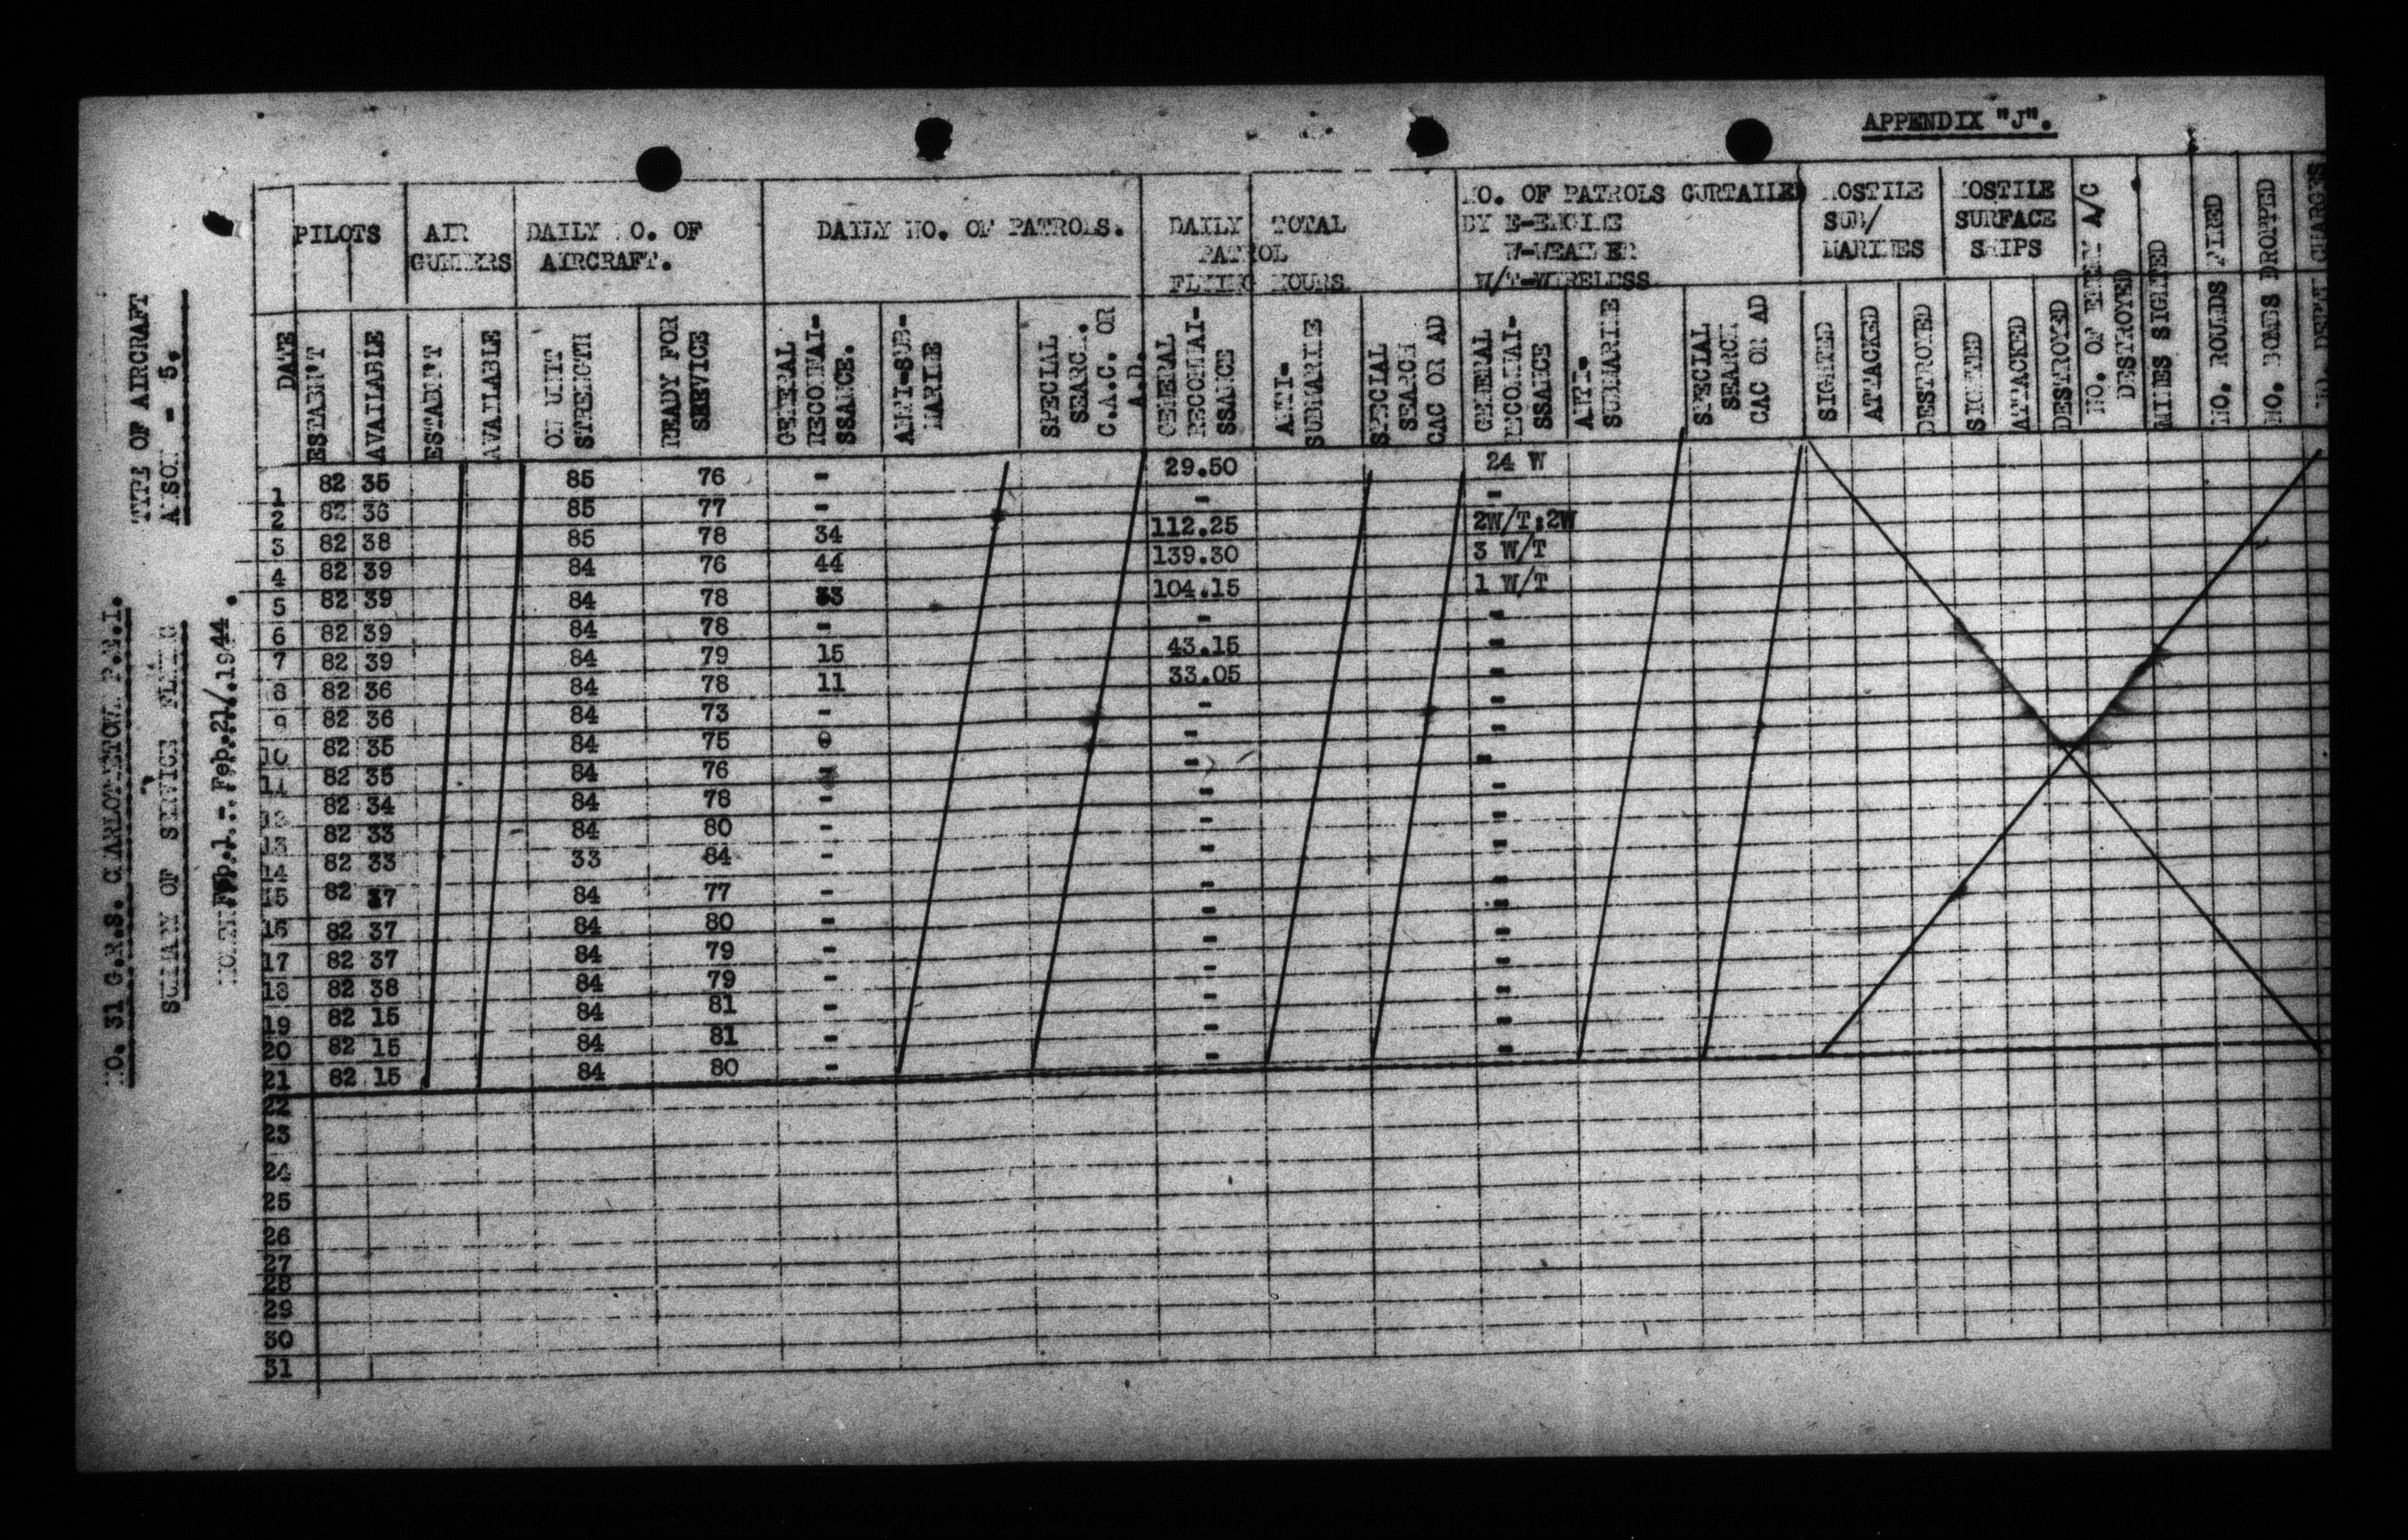 APPENDIX "J".
NO. 31 G.R.S. CHARLOTTETOWN P.E.I.
TYPE OF AIRCRAFT
ANSON - 5.
SUMMARY OF SERVICE FLYING
Feb.1.-.Feb.21/.1944.
PILOTS AIR GUNNERS DAILY NO. OF AIRCRAFT. DAILY NO. OF PATROLS. DAILY TOTAL PATROL FLYING HOURS NO. OF PATROLS CURTAILED BY E-ENGINE W-WEATHER W/T-WIRELESS HOSTILE SUB/MARINES HOSTILE SURFACE SHIPS NO. OF ENEMY A/C DESTROYED MINES SIGHTED NO. ROUNDS FIRED NO. BOMBS DROPPED NO. DEPTH CHARGES
DATE ESTABM'T AVAILABLE ESTABM'T AVAILABLE ON UNIT STRENGTH READY FOR SERVICE GENERAL RECONNAI-SSANCE. ANTI-SUB-MARINE SPECIAL SEARCH. C.A.C. OR A.D. GENERAL RECONNAI-SSANCE ANTI-SUBMARINE SPECIAL SEARCH CAC OR AD GENERAL RECONNAI-SSANCE ANTI-SUBMARINE SPECIAL SEARCH CAC OR AD SIGHTED ATTACKED DESTROYED SIGHTED ATTACKED DESTROYED
1 82 35 85 76 - 29.50 24 W
2 82 36 85 77 - - -
3 82 38 85 78 34 112.25 2W/T:2W
4 82 39 84 76 44 139.30 3 W/T
5 82 39 84 78 33 104.15 1 W/T
6 82 39 84 78 - - -
7 82 39 84 79 15 43.15 -
8 82 36 84 78 11 33.05 -
9 82 36 84 73 - - -
10 82 35 84 75 - - -
11 82 35 84 76 - - -
12 82 34 84 78 - - -
13 82 33 84 80 - - -
14 82 33 33 84 - - -
15 82 37 84 77 - - -
16 82 37 84 80 - - -
17 82 37 84 79 - - -
18 82 38 84 79 - - -
19 82 15 84 81 - - -
20 82 15 84 81 - - -
21 82 15 84 80 - - -
22
23
24
25
26
27
28
29
30
31